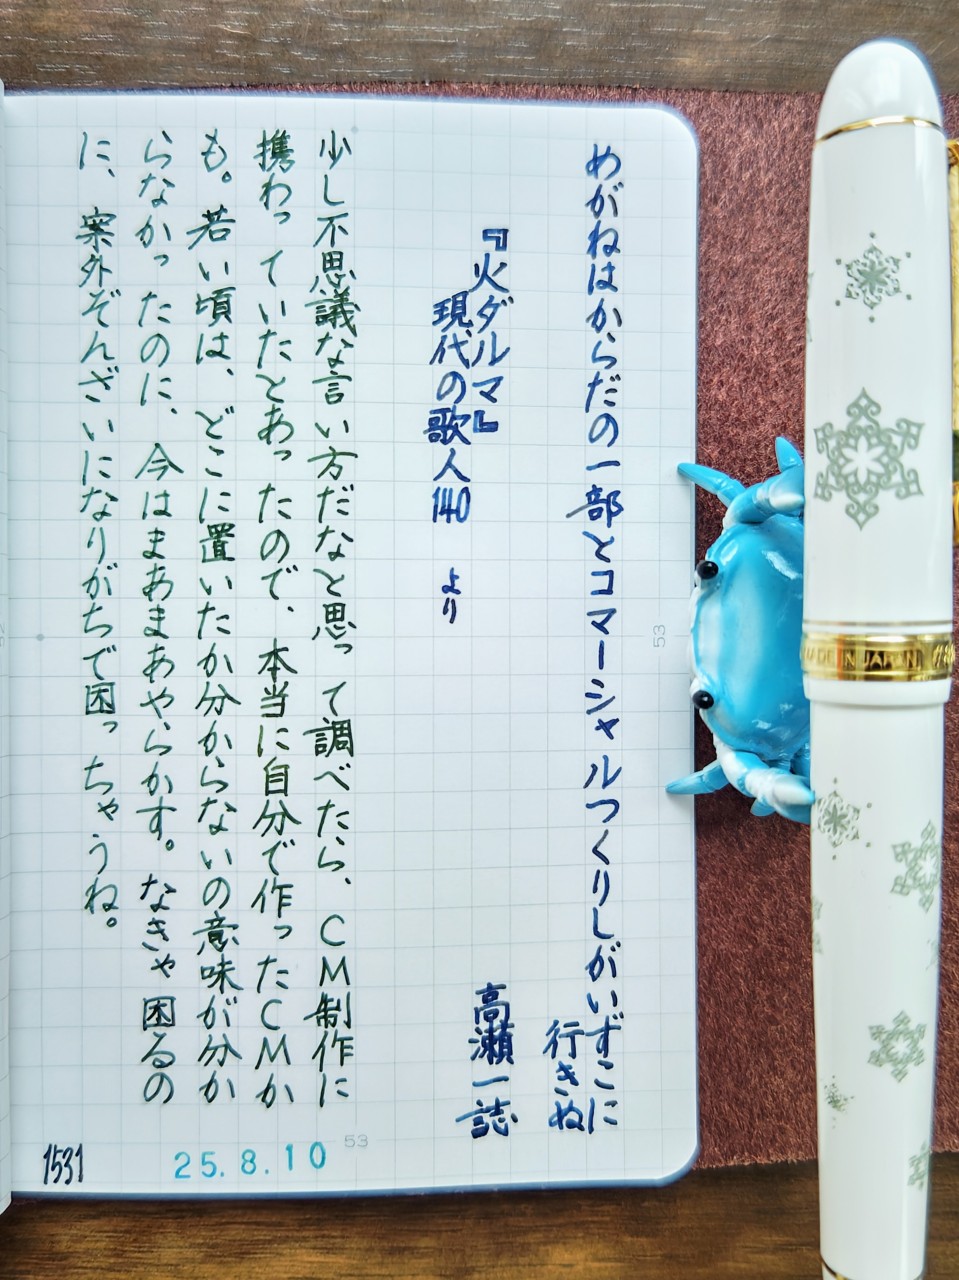 めがねはからだの一部とコマーシャルつくりしがいずこに
行きぬ
『火ダルマ』
高瀬一誌
現代の歌人140 より
少し不思議な言い方だなと思って調べたら、CM制作に
携わっていたとあったので、本当に自分で作ったCMか
も。若い頃は、どこに置いたか分からないの意味が分か
らなかったのに、今はまあまあやらかす。なきゃ困るの
に、案外ぞんざいになりがちで困っちゃうね。
1531
25.8.10
53
53
MADE IN JAPAN